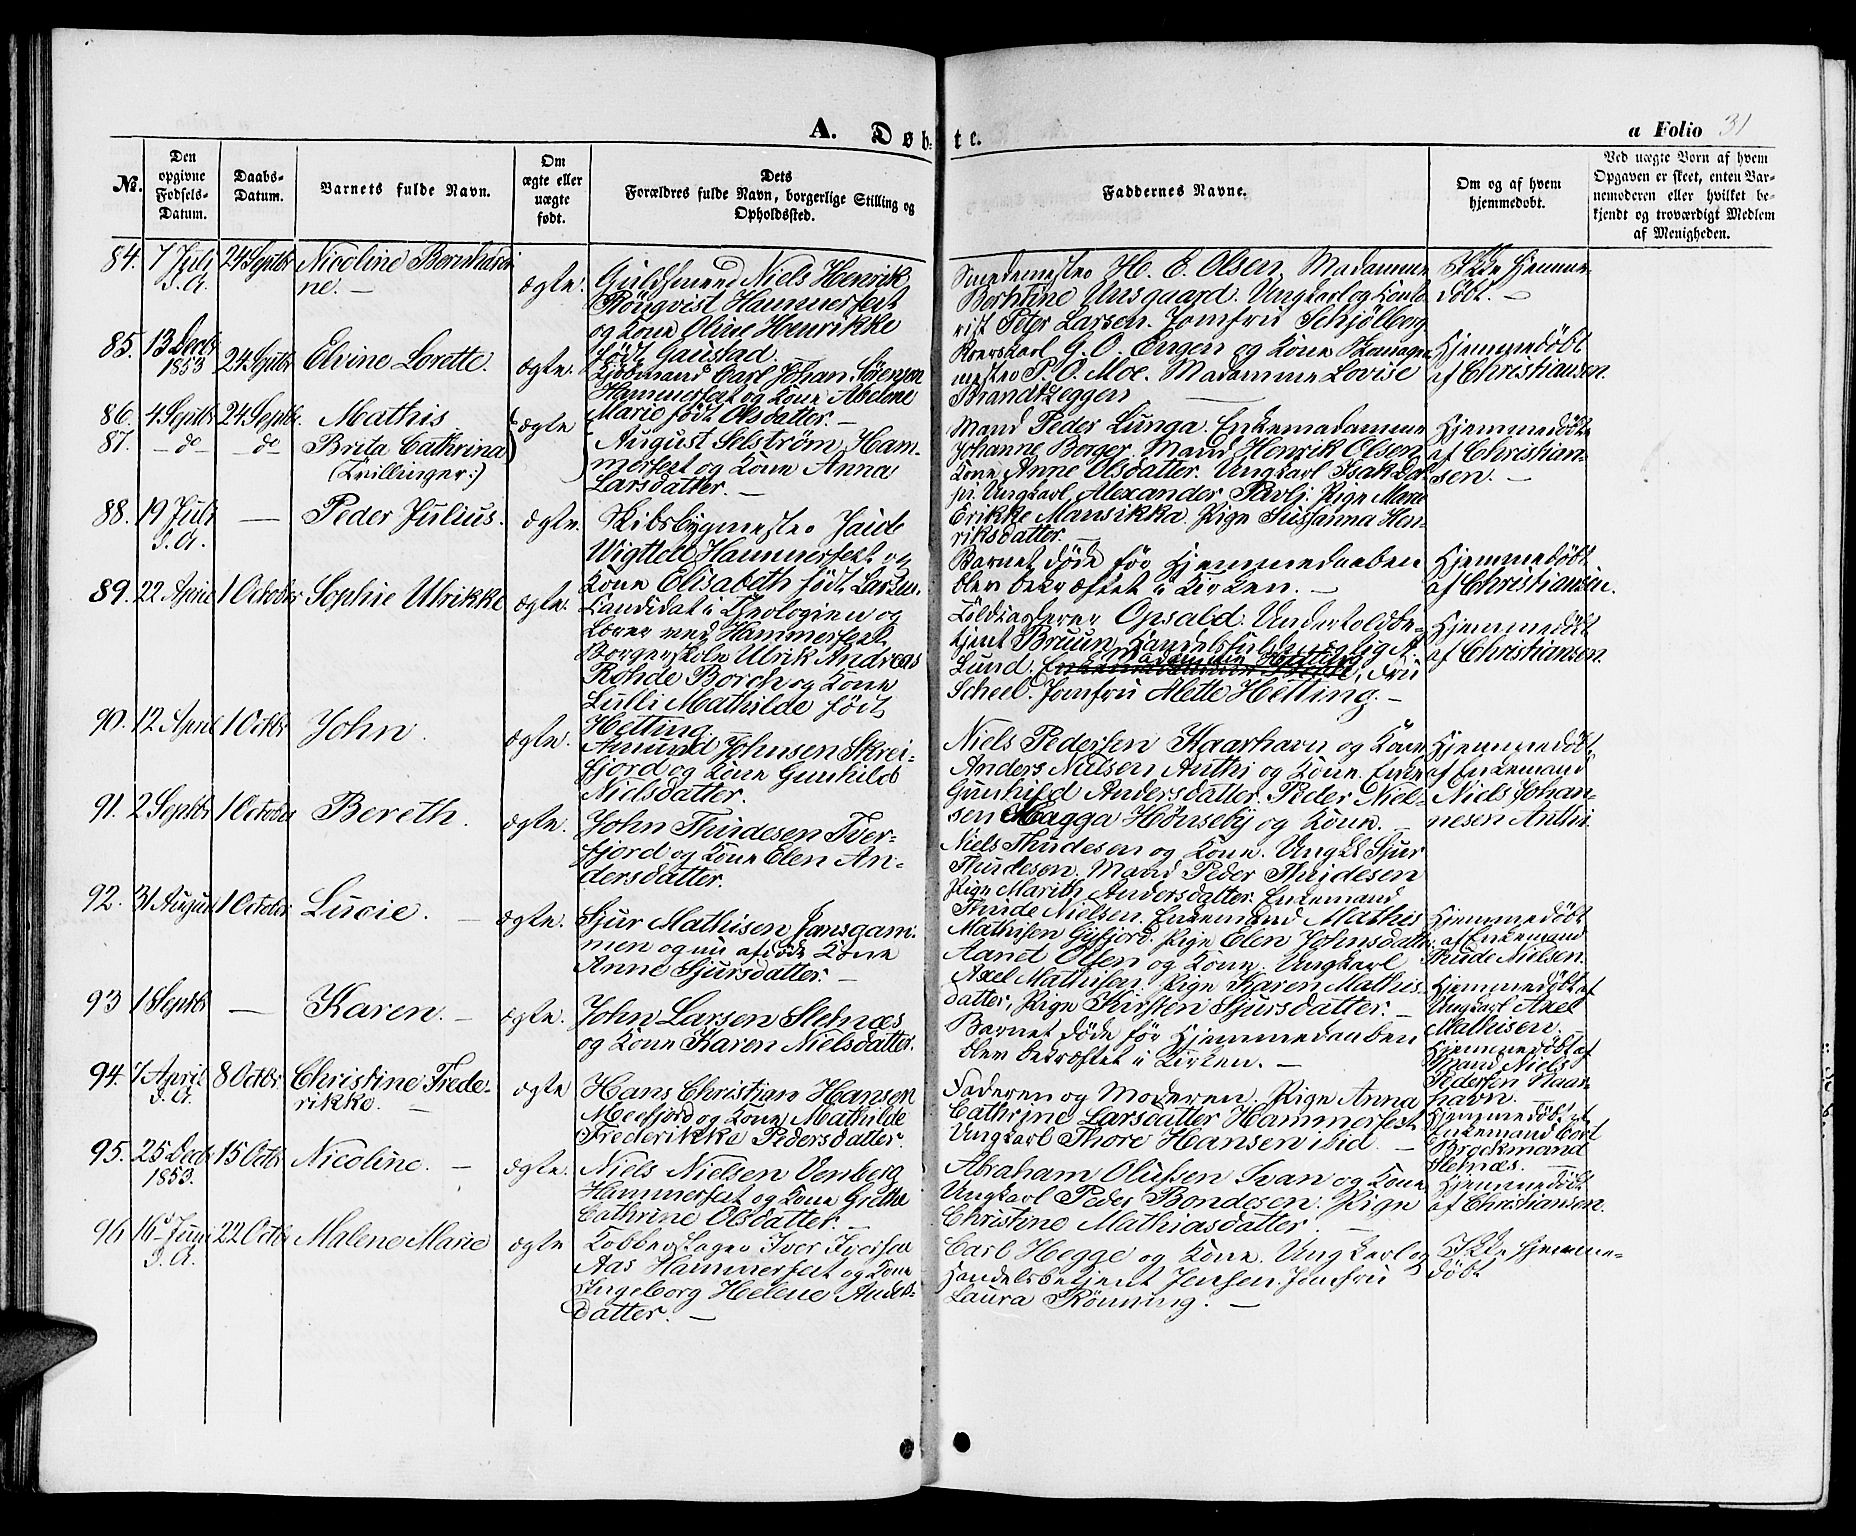 A. Døb-
te.
a Folio 31
No.
Den opgivne Fødsels-Datum.
Daabs-Datum.
Barnets fulde Navn.
Om ægte eller uægte født.
Dets Forældres fulde Navn, borgerlige Stilling og Opholdssted.
Faddernes Navne.
Om og af hvem hjemmedøbt.
Ved uægte Born af hvem Opgaven er skeet, enten Bar-nemoderen eller hvilket be-kjendt og troværdigt Medlem af Menigheden.
84. 7 Juli 24 Septbr Nicoline Bernhardi-
d. A. ne. — ægte.
Guldsmed Niels Henrik
Rönqvist Hammerfest
og Kone Oline Henrikke
født Gaustad.
Smedemester H. E. Olsen, Madamme
Berntine Unsgaard. Ungkarl og Konto-
rist Peter Larsen. Jomfru Schjölberg
Ikke hjemme-
døbt. —
85. 13 Decbr 24 Septbr Elvine Lorette. ægte.
1853
Kjøbmand Carl Johan Sörensen
Hammerfest og Kone Abeline
Marie født Olsdatter. —
G. O. Engen og Kone
P. O. Moe. Madamme Lovise
Brandtzeggen
Hjemmedöbt
af Christiansen.
86. 4 Septbr 24 Septbr. Mathis ægte
87. — do — — do — Brita Cathrina
(Tvillinger:)
August Selström, Ham-
merfest og Kone Anna
Larsdatter. —
Mand Peder Lunga. Enkemadamme
Johanne Borger. Mand Henrik Olsen
Kone Anne Olsdatter. Ungkarl Isak
Ungkarl Alexander Pavlj. Pige Maria
Erikke Mansikka. Pige Susanna Hen-
riksdatter. —
Hjemmedöbte
af Christian-
sen. —
88. 19 Juli — Peder Julius. ægte.
d. A.
Skibsbygmester
Hammerfest og
Kone Elisabeth født Larsen.
Barnet døde før Hjemmedaaben
blev bekræftet i Kirken. —
Hjemmedöbt
af Christiansen.
89. 22 April 1 October Sophie Ulrikke ægte.
Kandidat i Theologien og
Lærer ved Hammerfest
Borgerskole Ulrik Andreas
Rohde Borch og Kone
Lulli Mathilde født
Hetting.
Toldkasserer Opsald. Undertoldbe-
tjent Bruun, A.
Lund. Fru
Scheel. Jomfru Alette Hetting. —
Hjemmedöbt
af Christiansen.
90. 12 April 1 Octbr John. ægte.
Amund Johnsen Skrei-
fjord og Kone Gunhild
Nielsdatter.
Niels Pedersen Kaarhavn og Kone
Anders Nielsen Anthi og Kone. Enke
Gunhild Andersdatter. Peder Niel-
sen Magga Hønseby og Kone. —
Hjemmedöbt
af Enkemand
Niels Johan-
nesen Anthi
91. 2 Septbr 1 October Bereth. ægte.
John Thudesen Tver-
fjord og Kone Elen An-
dersdatter.
Niels Thudesen og Kone. Ungk. Sjur
Thudesen. Mand Peder Thudesen
Pige Marith Andersdatter. Enkemand
Thude Nielsen.
Hjemmedöbt
af Enkemand
Thude Nielsen.
92. 31 August 1 October Lucie. — ægte.
Sjur Mathisen Jansgam-
men og nu afdöde Kone
Anne Sjursdatter. —
Enkemand Mathis
Mathisen Gifjord. Pige Elen Johnsdatter.
Aanet Olsen og Kone. Ungkarl
Axel Mathisen. Pige Karen Mathis-
datter, Pige Kirsten Sjursdatter. —
Hjemmedöbt af
Ungkarl Axel
Mathisen.
93 1 Septbr — Karen. — ægte.
John Larsen Stelnæs
og Kone Karen Nielsdatter.
Barnet døde før Hjemmedaaben
blev bekræftet i Kirken. —
Hjemmedöbt af
Mand Niels
Pedersen Kaar-
havn.
94. 7 April 8 Octbr. Christine Frede- ægte
d. A. rikke. —
Hans Christian Hansen
Meefjord og Kone Mathilde
Frederikke Pedersdatter.
Faderen og Moderen. Pige Anna
Cathrine Larsdatter Hammerfest
Ungkarl Thore Hansen ibid. —
Hjemmedöbt af
Enkemand Cort
Brockmand
Stelnæs. —
95. 25 Decbr 15 Octbr Nicoline. — ægte.
1853.
Niels Nielsen Venberg
Hammerfest og Kone Grethe
Cathrine Olsdatter. —
Abraham Olufsen Svan og Kone
Ungkarl Peder Bondesen. Pige
Christine Mathiasdatter. —
Hjemmedöbt
af Christiansen.
96 16 Juni 22 Octbr Malene Marie ægte
d. A.
Kobberslager Iver Iversen
Aas Hammerfest og Kone
Ingeborg Helene Anders-
datter. —
Carl Hegge og Kone. Ungkarl og
Handelsbetjent Jensen. Jomfru
Laura Rönning. —
Ikke hjemme-
döbt